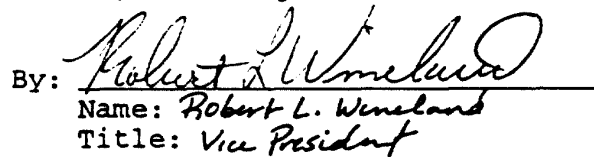 By: Robert L Wineland
Name: Robert L. Wineland
Title: Vice President